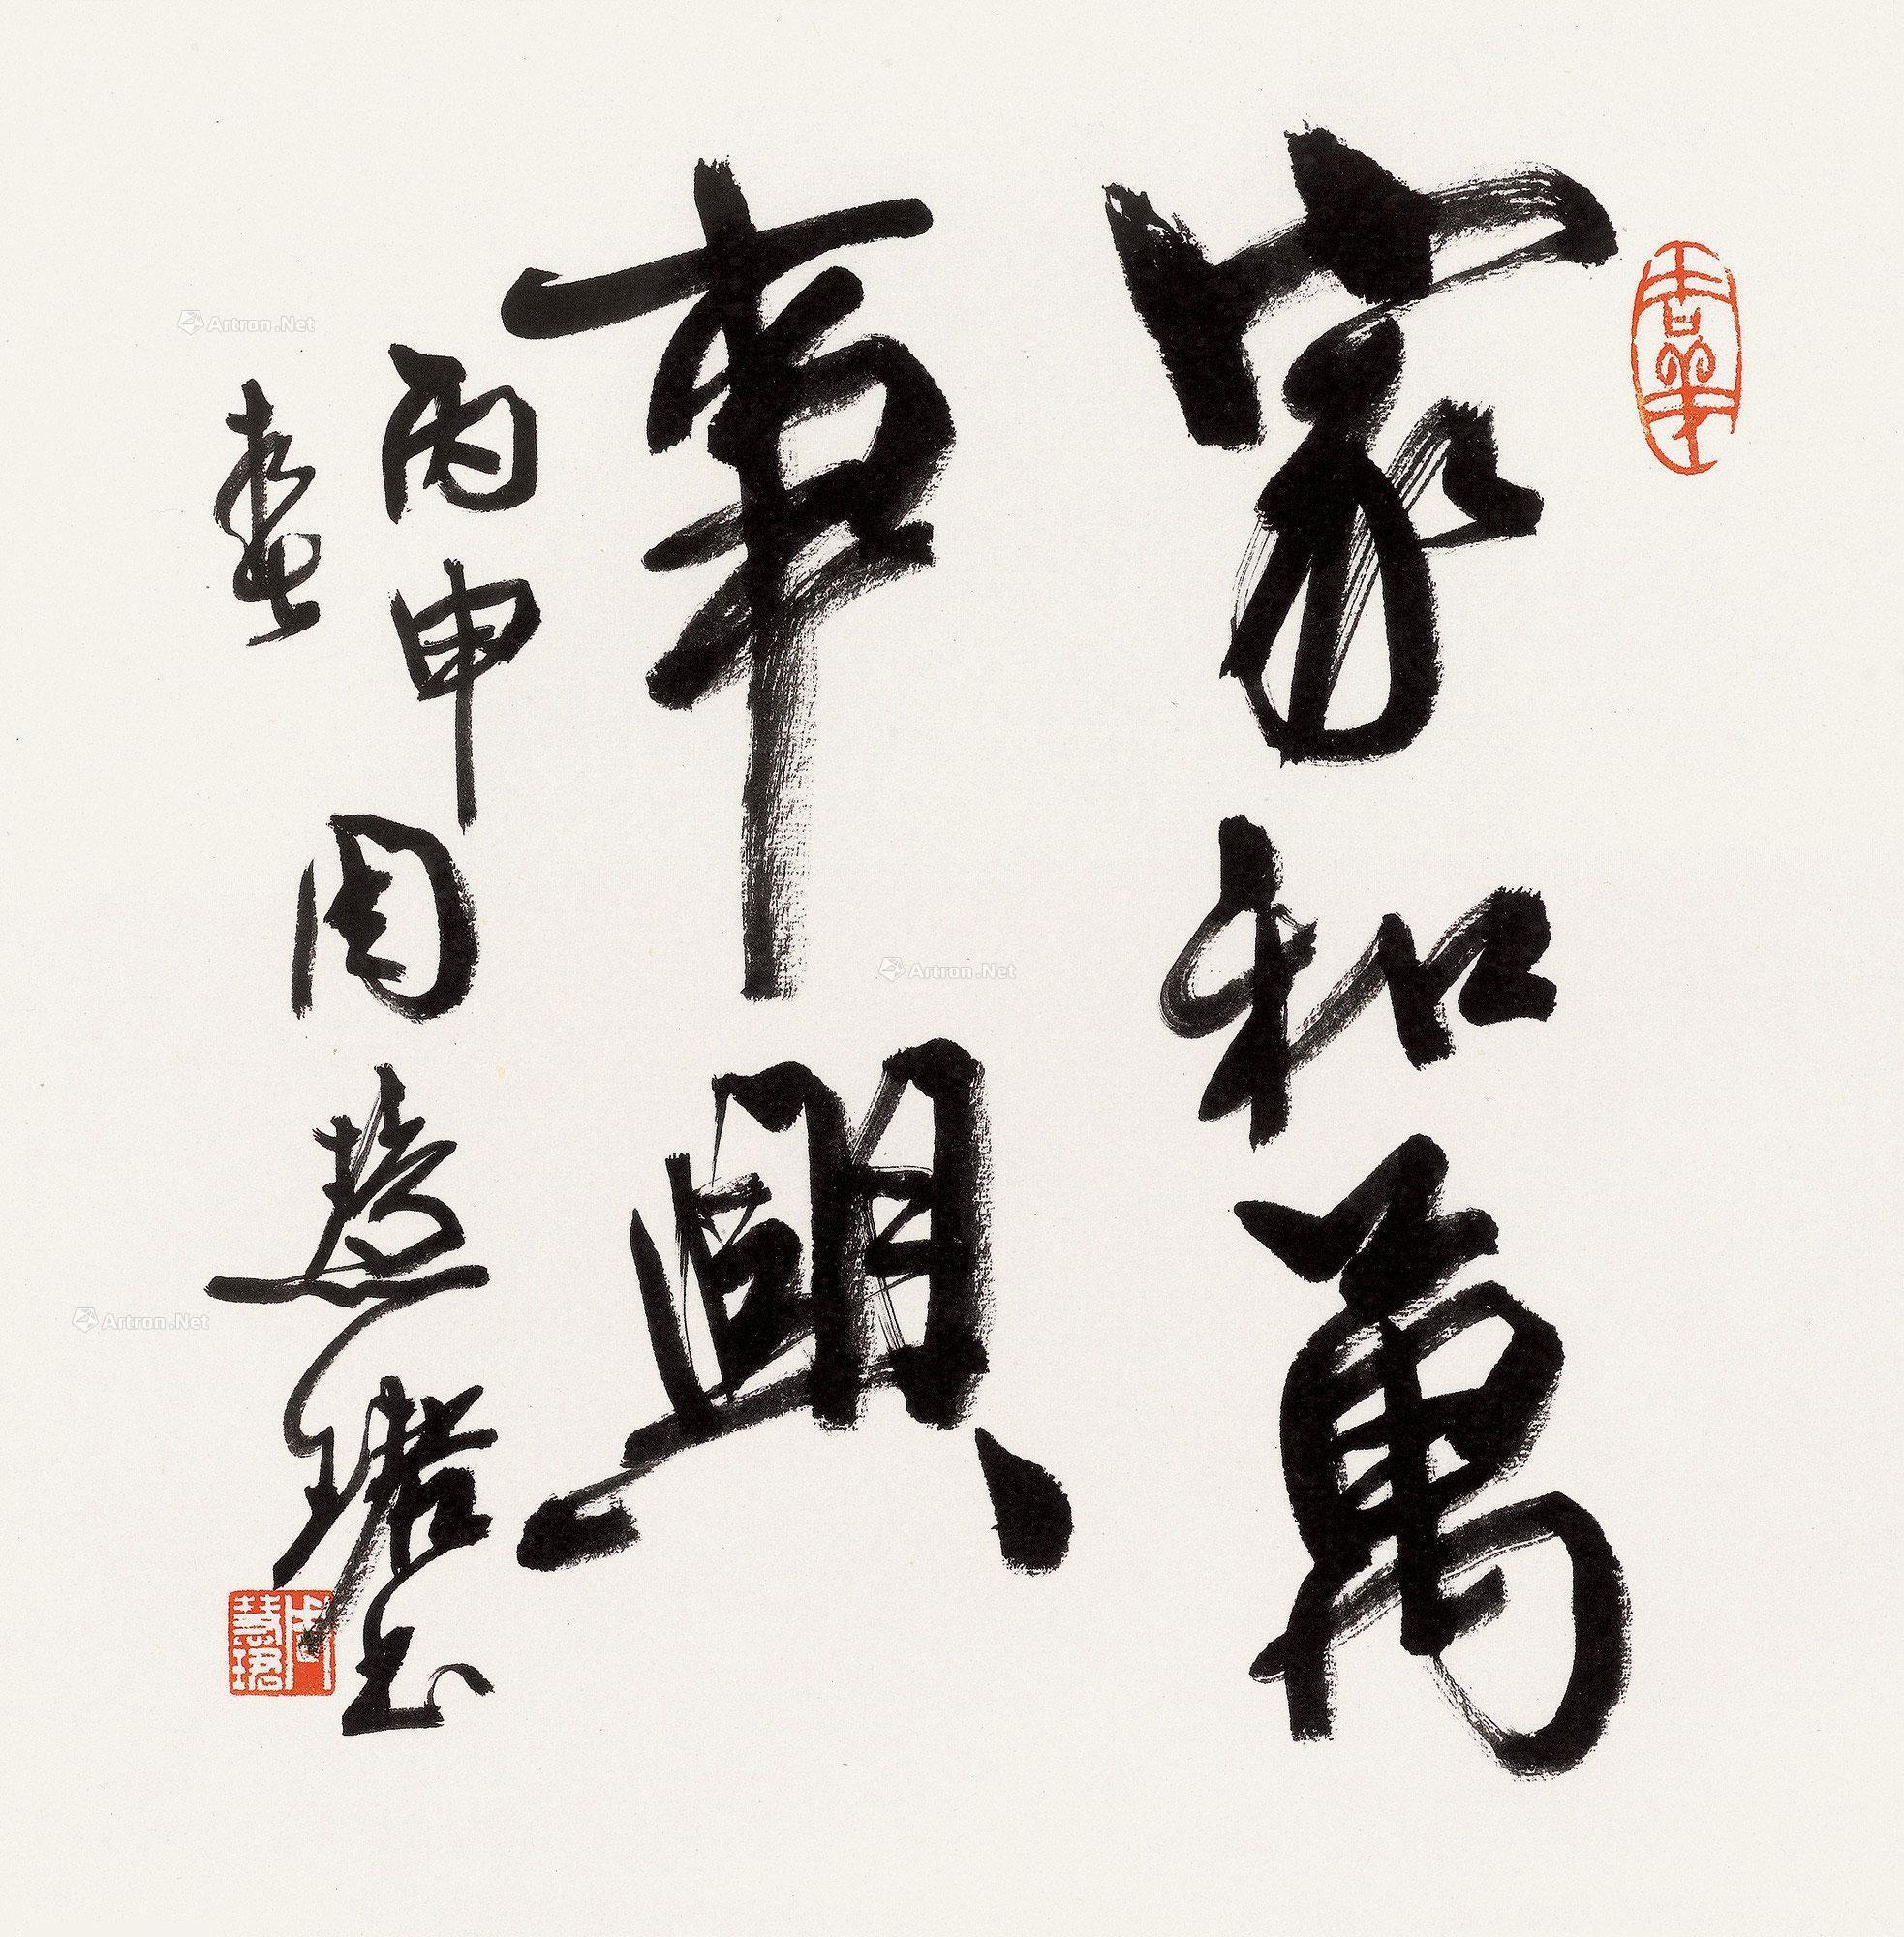 家和萬
事興
丙申
春
周慧珺书
周慧珺
Artron.Net
Artron.Net
Artron.Net